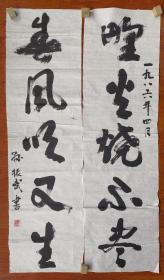 野火烧不尽
一九八六年四月
春风吹又生
孙振武书